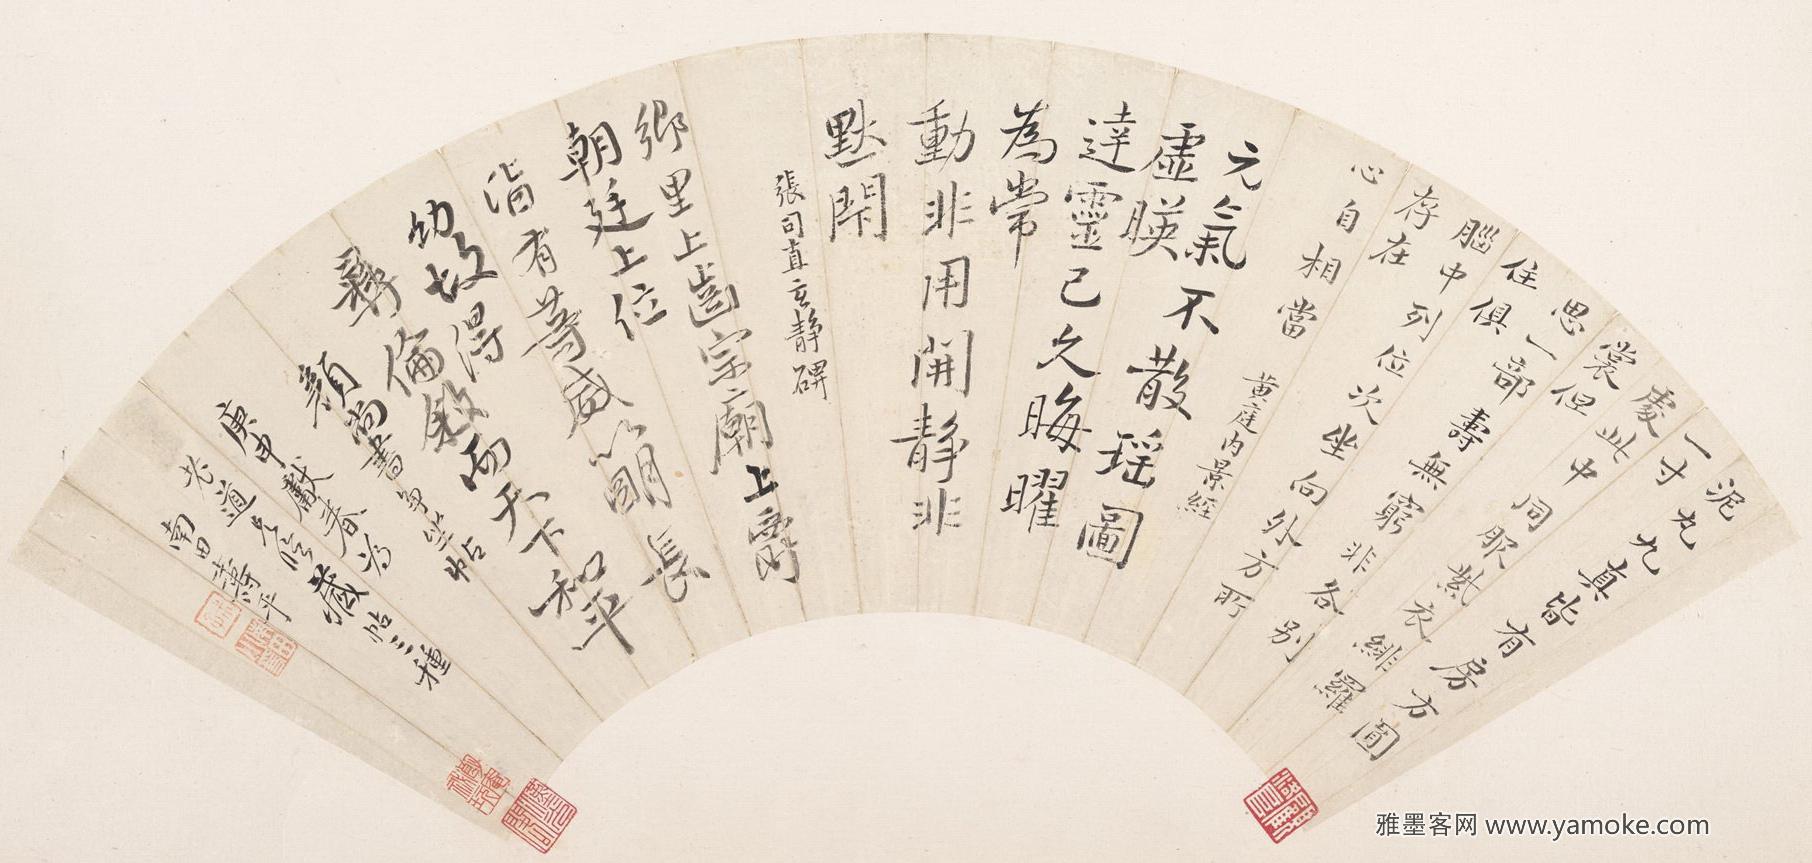 泥丸九真皆有房方圓
一寸
處此中同服紫衣緋羅
裳但
思一部壽無窮非各別
住俱
腦中列位次坐向外方所
存在
心自相當
黄庭内景經
元氣不散瑶圖
虛暎
達靈已久晦曜
為常
動非用開靜非
默閇
張司直玄靜碑
鄉里上齒宗廟上爵
朝廷上位
皆有等威以明長
幼故得
彝倫敘而天下和平
顏尚書爭坐帖
庚申獻春為
老道兄臨藏帖三種
南田壽平
雅墨客网 www.yamoke.com